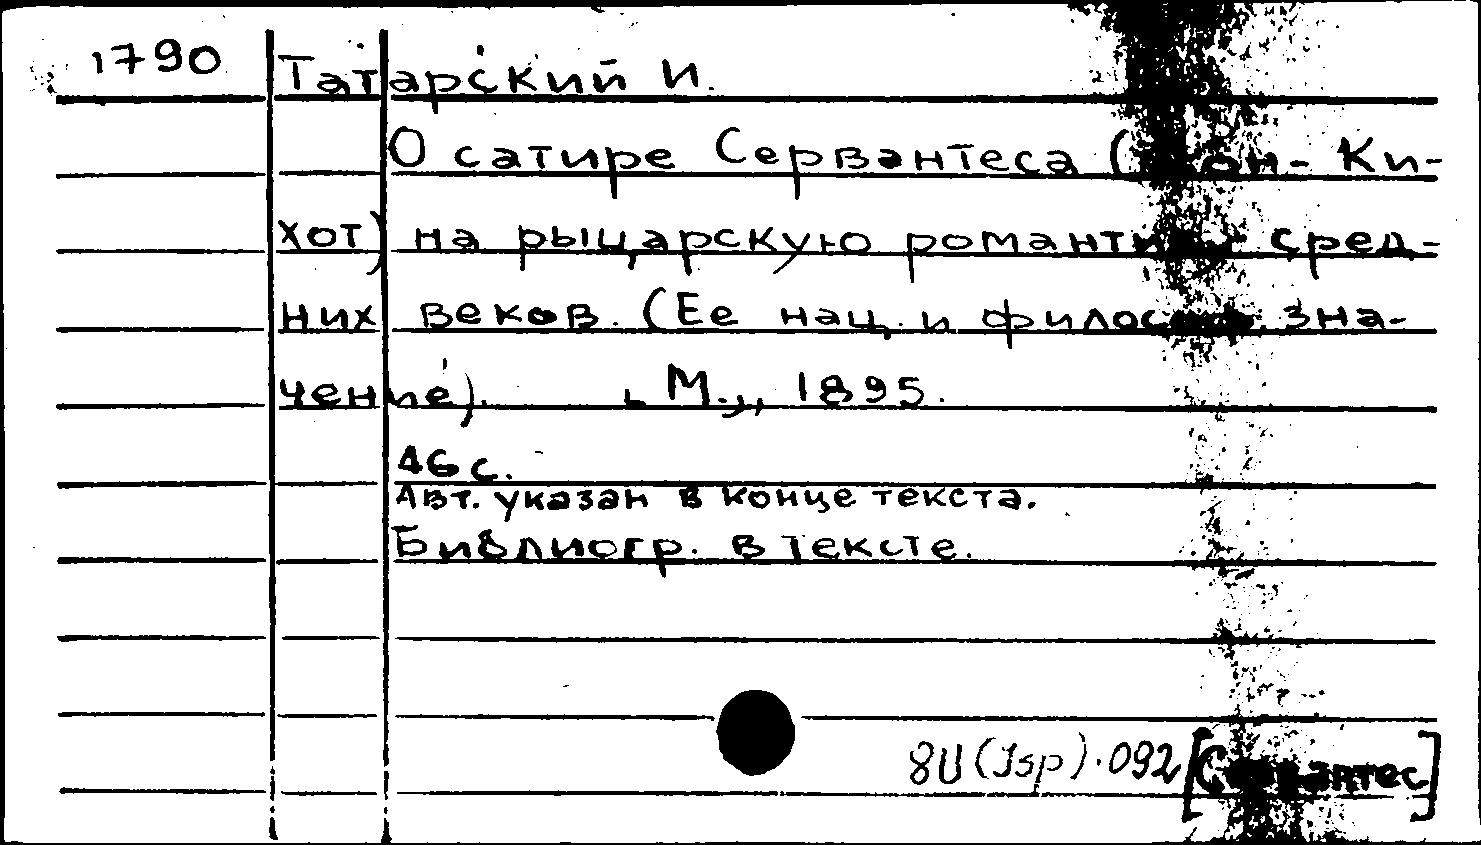 1790 Татарский И.
О сатире Сервантеса (Дон-Ки-
хот) на рыцарскую романтику сред-
них веков. (Ее нац. и философ. зна-
чение). М., 1895.
46 с.
Авт. указан в конце текста.
Библиогр. в тексте.
8U(Jsp).092[Сервантес]